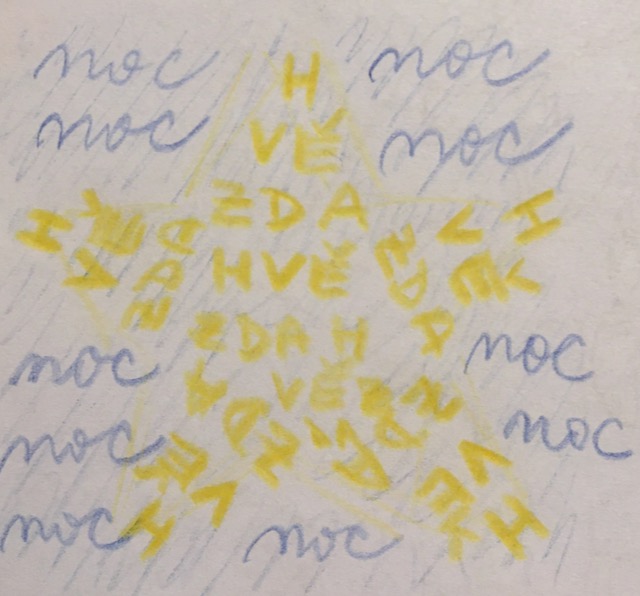 noc
noc
noc
noc
H
VĚ
ZDA
HVĚ
ZDAH
VĚ
HVĚZDA
HVĚZDA
HVĚZDA
HVĚZDA
noc
noc
noc
noc
noc
noc